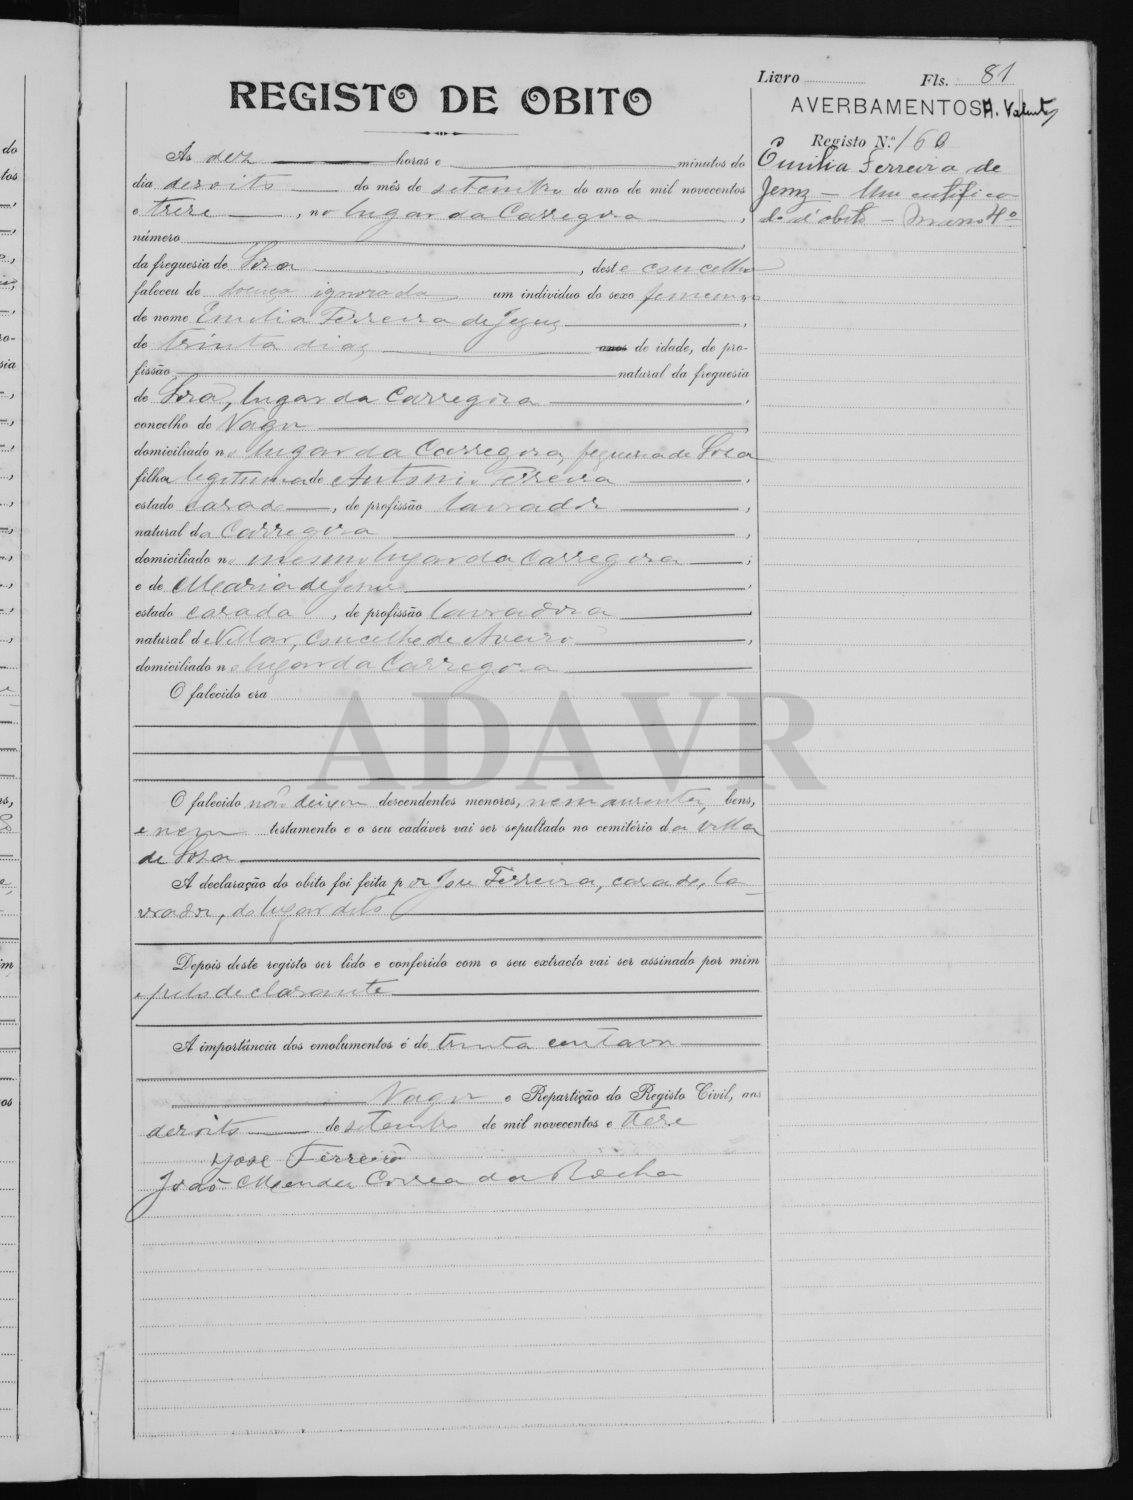 Livro Fls. 81
REGISTO DE OBITO
AVERBAMENTOS
Registo N.º 160
Emilia Ferreira de
Jesus — Um certifica
do d'obito — Maço 4º
Às dez horas e minutos do
dia dezoito do mês de setembro do ano de mil novecentos
e treze, no lugar da Carregosa,
número
da freguesia de Soza, deste concelho
faleceu de doença ignorada um individuo do sexo femenino
de nome Emilia Ferreira de Jesus,
de trinta dias anos de idade, de pro-
fissão natural da freguesia
de Soza, lugar da Carregosa,
concelho de Vagos
domiciliado no lugar da Carregosa, freguesia de Soza
filha legitima de Antonio Ferreira,
estado casado, de profissão lavrador,
natural da Carregosa,
domiciliado no mesmo lugar da Carregosa;
e de Maria de Jesus,
estado casada, de profissão lavradora,
natural de Villar, concelho de Aveiro,
domiciliado no lugar da Carregosa
O falecido era
ADAVR
O falecido não deixou descendentes menores, nem ausentes, bens,
e nem testamento e o seu cadáver vai ser sepultado no cemitério da villa
de Soza
A declaração do obito foi feita por José Ferreira, casado, la-
vrador, do lugar dito
Depois deste registo ser lido e conferido com o seu extracto vai ser assinado por mim
e pelo declarante
A importância dos emolumentos é de trinta centavos
Vagos e Repartição do Registo Civil, aos
dezoito de setembro de mil novecentos e treze
José Ferreira
João Mendes Correa da Rocha